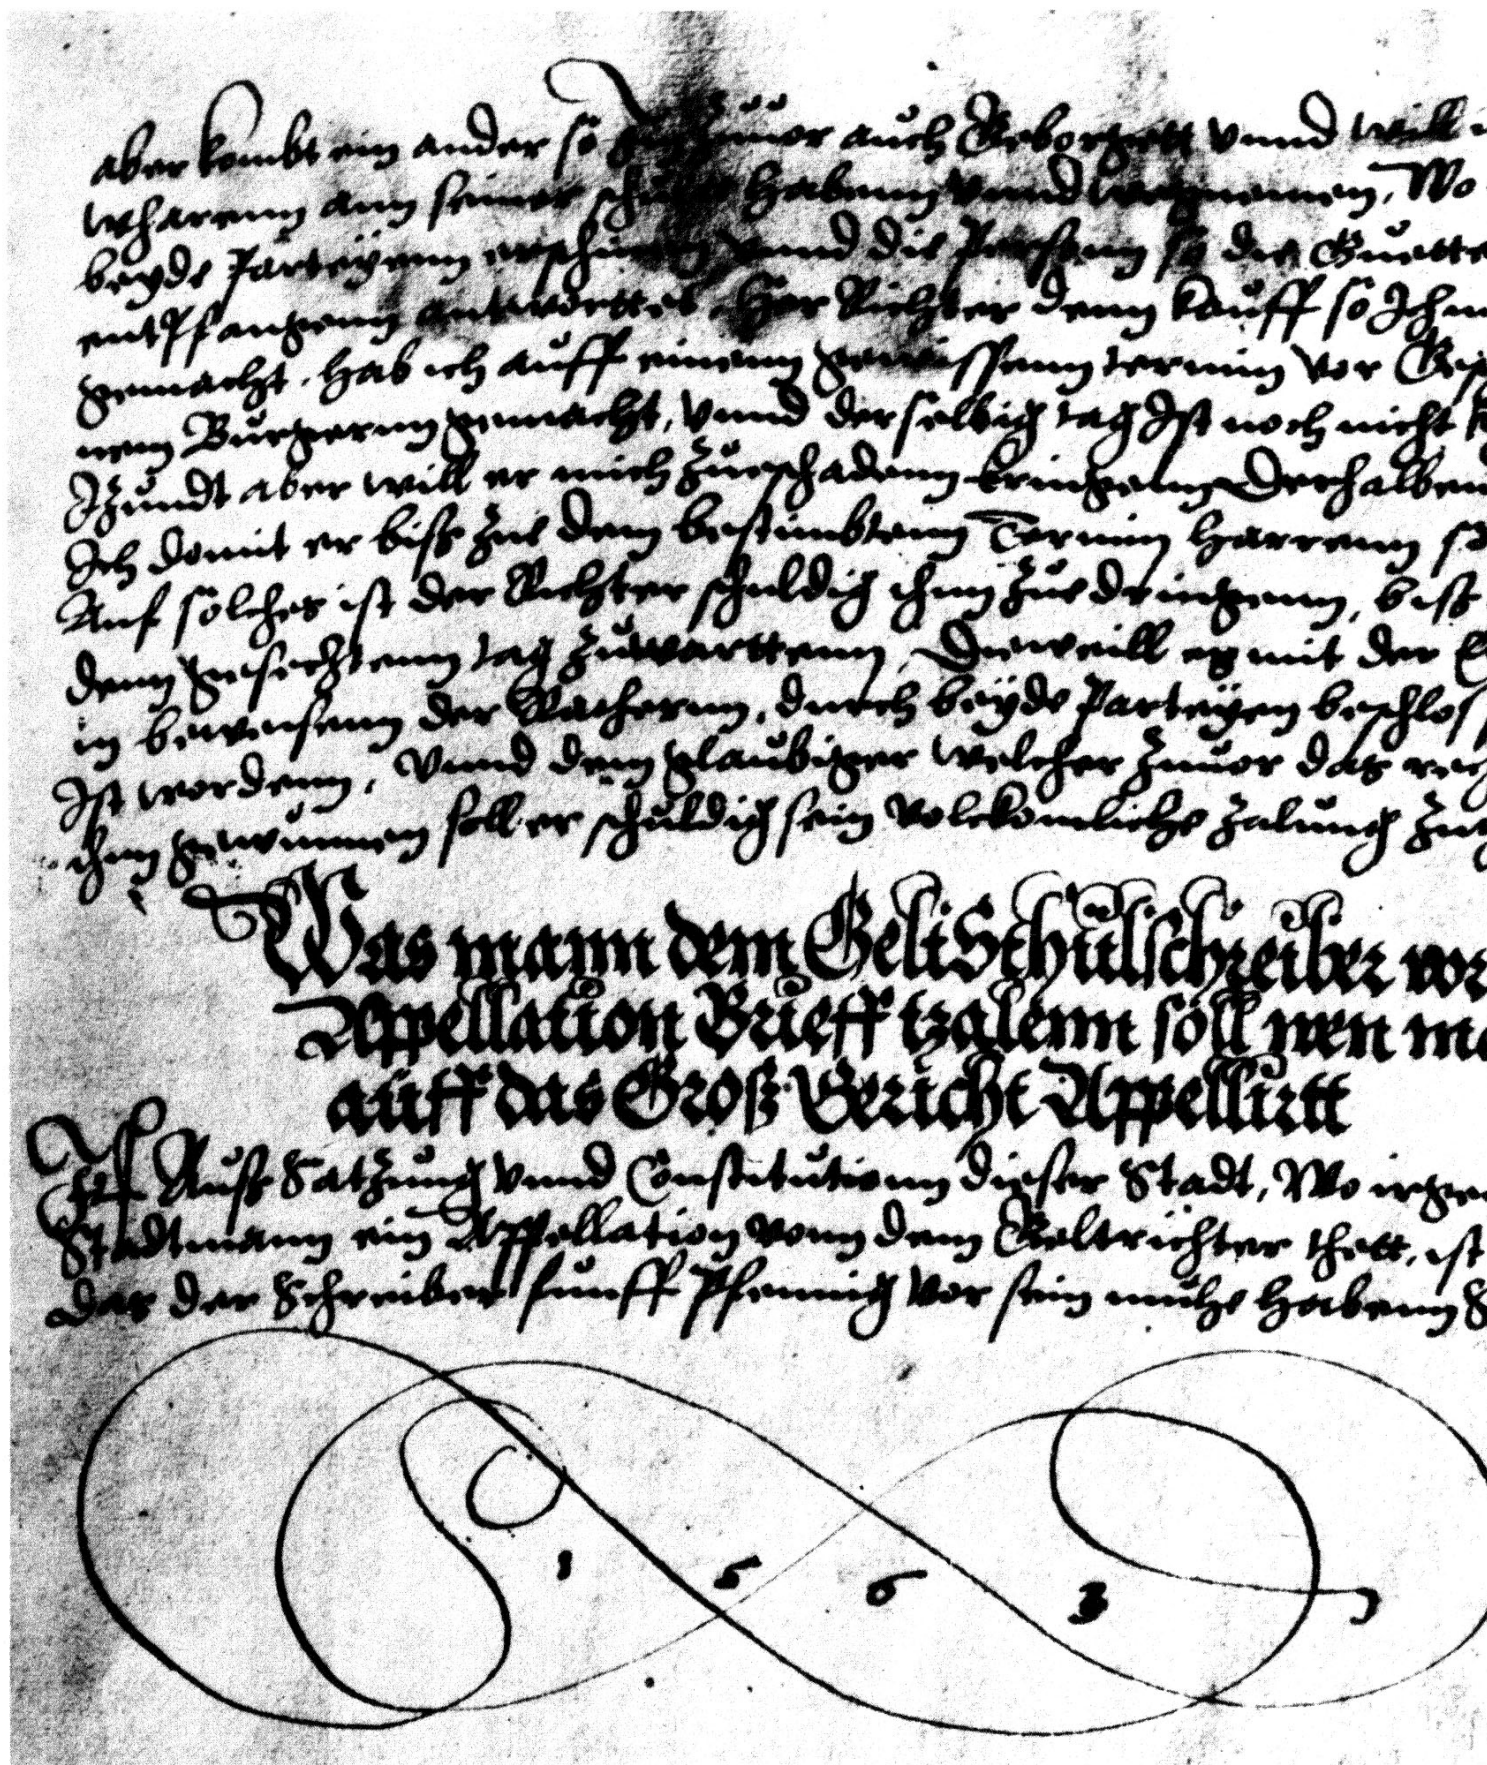 aber kombt ein ander so zuuor auch Geborgett vnnd will
wharenn ann seiner habenn vnnd wegnemen, Wo
beyde Parteyenn erschinen vnnd die Persönn so die Guette
entPfangenn antworttet Her Richter denn kauff so Ich
gemacht. hab ich auff einenn gewissenn termin vor
nem Burgernn gemacht, vnnd derselbig tag Ist noch nicht
Izundt aber will er mich zue schadenn bringenn Derhalben
Ich domit er biss zue dem bestimbtenn Termin harrenn
Auf solches ist der Richter schuldig ihnn zue dringenn, biss
denn gesechtenn tag zuwarttenn, Dieweill es mit der
in beweisenn der Rathernn, durch beyde Parteyen beschloss
Ist wordenn, Vnnd dem glaubiger welcher zuuor das
ihm gewunnen soll er schuldig sein volckomliche zalung
Was mann dem Gelt Schulschreiber vor
Appellation Brieff tzalenn soll wen
auff das Groß Gericht Appellirtt
Auss Satzung vnnd Constitutionn dieser Stadt, Wo
Stadtmann ein Appellation vonn dem Geltrichter thett, ist
Das der Schreiber funff Pfennig vor sein muhe habenn
1 5 6 3